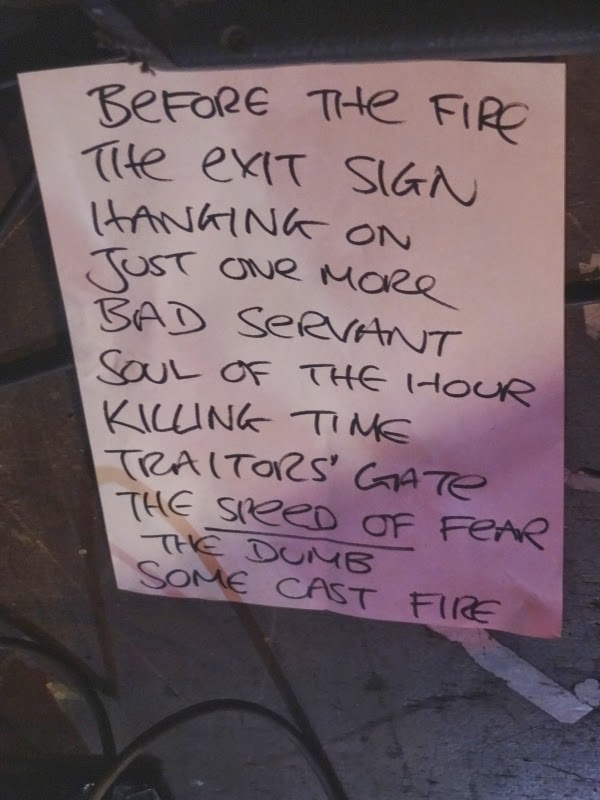 BeFORE THe FIRe
THe eXIT SIGN
HANGING ON
JUST ONe MORe
BAD SeRVANT
SOUL OF THE HOUR
KILLING TIME
TRAITORS' GATe
THE SPeeD OF FeAR
THE DUMB
SOME CAST FIRE